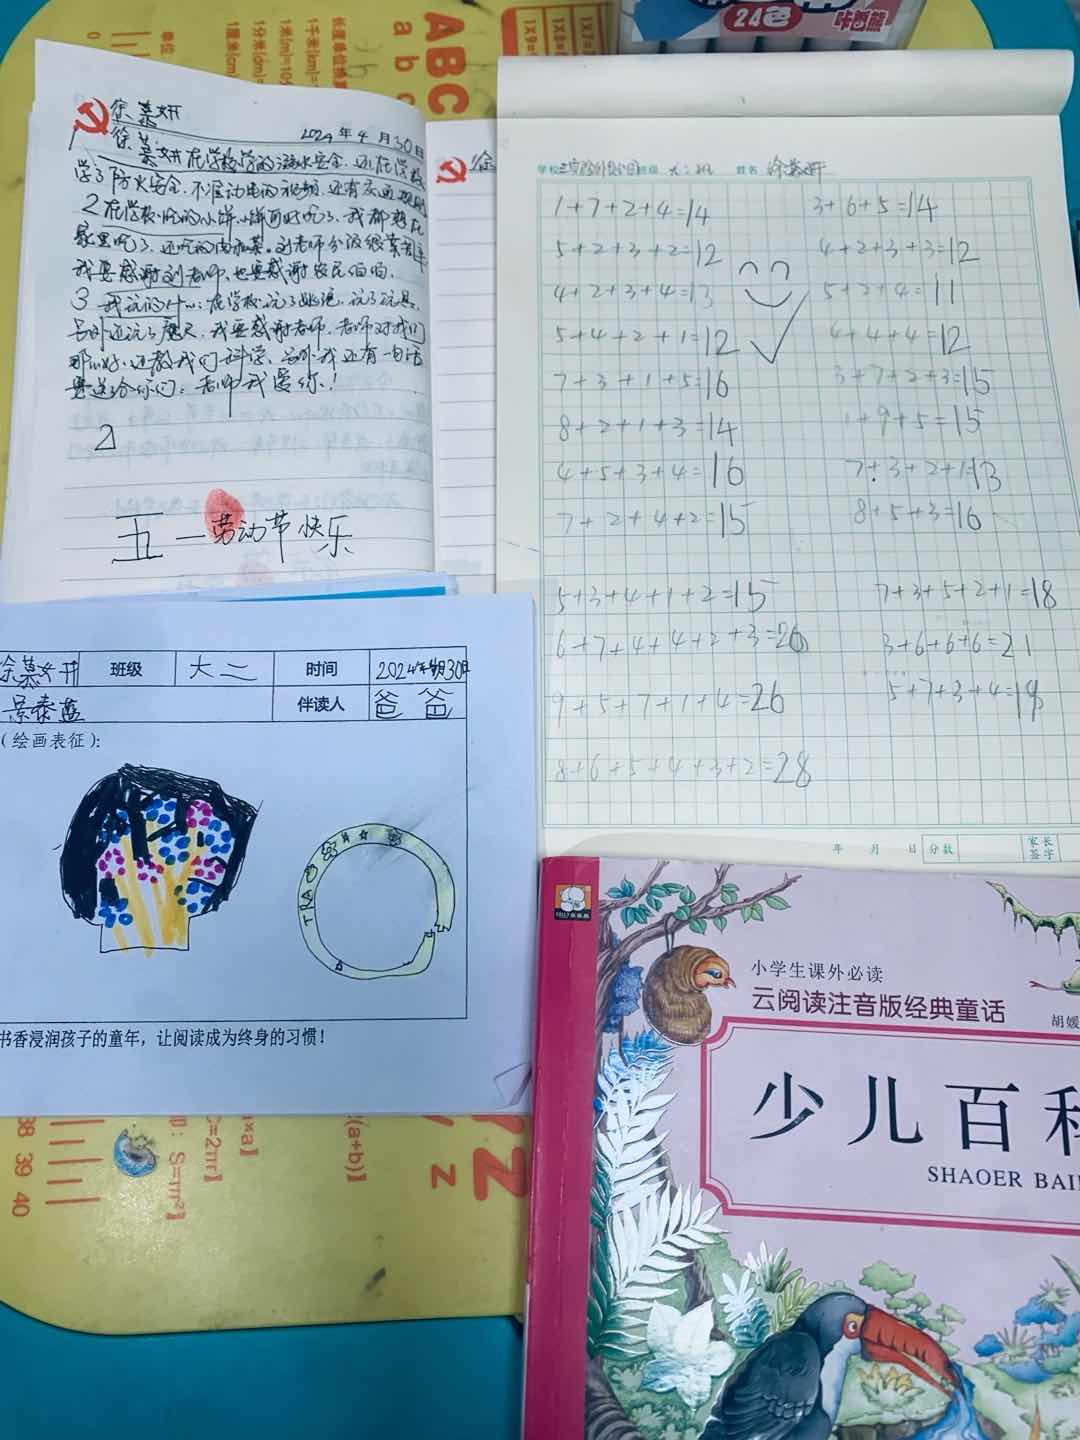 24色
咔酷熊
ABC
徐慕妍
2024年4月30日
徐慕妍在学校学的溺水安全.还在学校
学了防火安全.不准动电的视频.还有交通规则
2在学校.吃的小饼.小饼可好吃了.我都想在
家里吃了.还吃的肉和菜。刘老师分饭很辛苦
我要感谢刘老师.也要感谢农民伯伯.
3
我玩的什么:在学校.玩了跳绳.玩了玩具.
我要感谢老师.老师对我们
那么好.还教我们科学.另外.我还有一句话
要送给你们:老师我爱你!
2
五一劳动节快乐
学校
班级 大二班 姓名 徐慕妍
1+7+2+4=14 3+6+5=14
5+2+3+2=12 4+2+3+3=12
4+2+3+4=13 5+2+4=11
5+4+2+1=12 4+4+4=12
7+3+1+5=16 3+7+2+3=15
8+2+1+3=14 1+9+5=15
4+5+3+4=16 7+3+2+1=13
7+2+4+2=15 8+5+3=16
5+3+4+1+2=15 7+3+5+2+1=18
6+7+4+4+2+3=26 3+6+6+6=21
9+5+7+1+4=26 5+7+3+4=19
8+6+5+4+3+2=28
年 月 日 分数 家长签字
徐慕妍 班级 大二 时间 2024年4月30日
景泰蓝 伴读人 爸爸
(绘画表征):
书香浸润孩子的童年，让阅读成为终身的习惯！
小学生课外必读
云阅读注音版经典童话
胡媛
少儿百科
SHAOER BAI
38 39 40